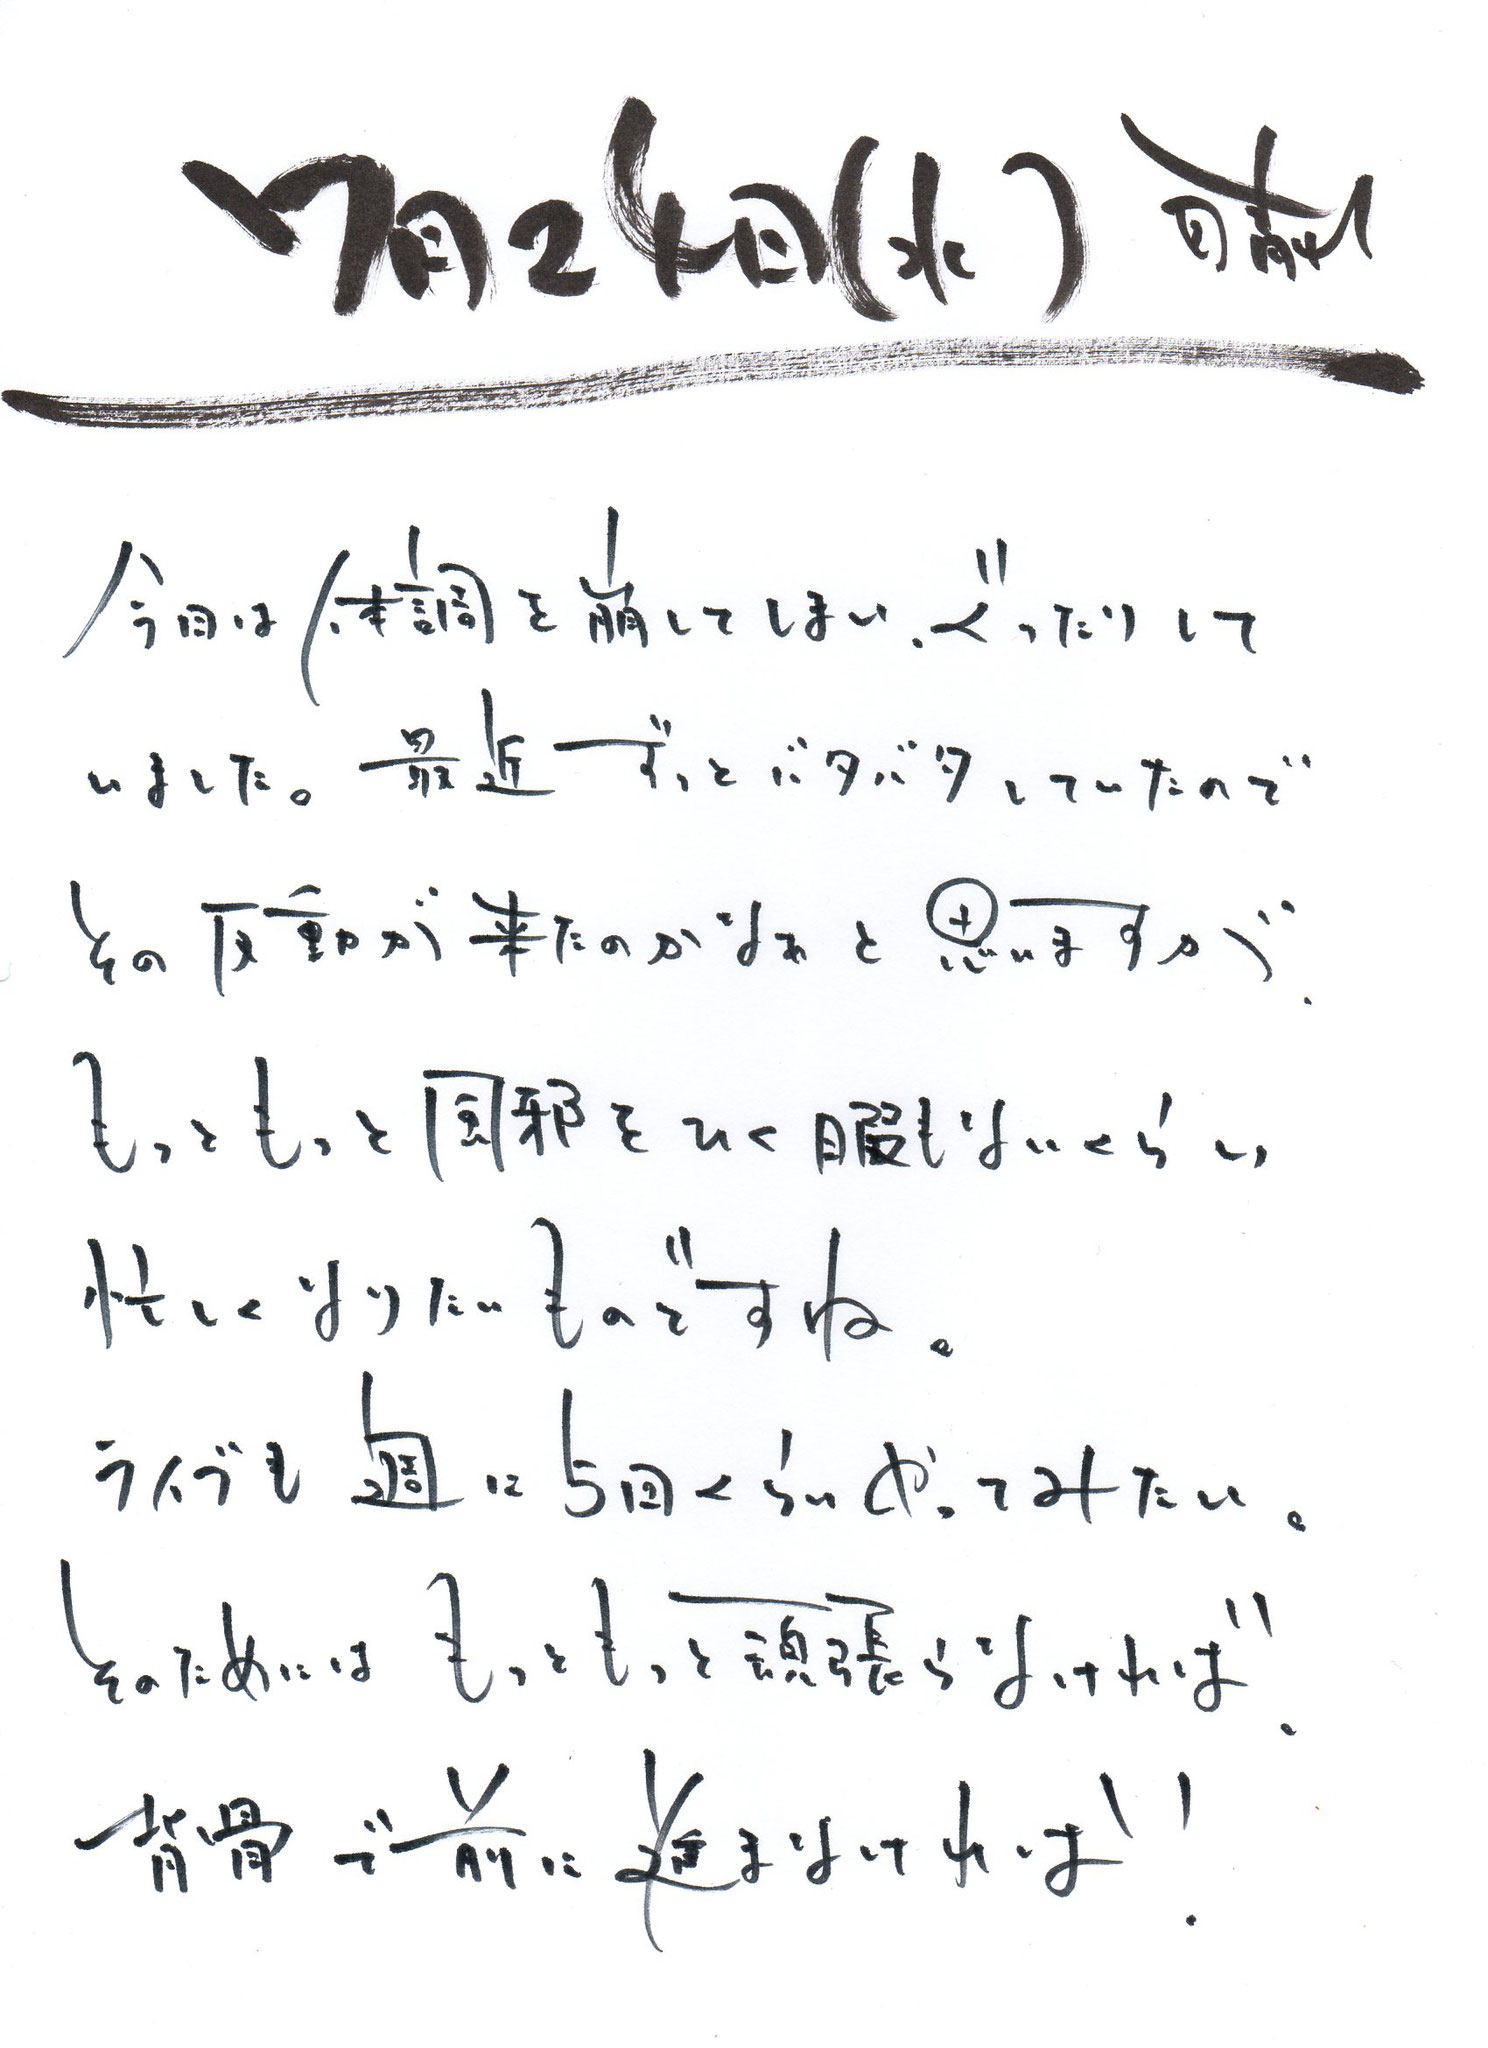 7月24日(水) 晴れ
今日は体調を崩してしまい、ぐったりして
いました。最近ずっとバタバタしていたので
その反動が来たのかなぁと思いますが、
もっともっと風邪をひく暇もないくらい
忙しくなりたいものですね。
ライブも週に5回くらいやってみたい。
そのためにはもっともっと頑張らなければ、
背骨で前に進まなければ、